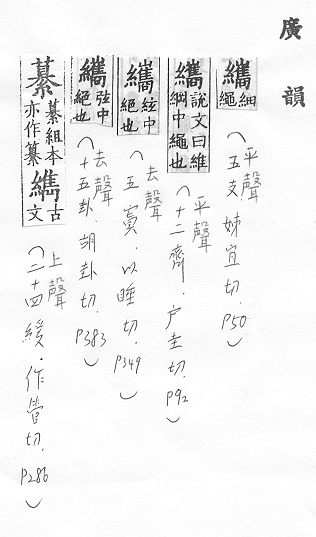 廣韻
纗 細繩 （平聲 五支．姊宜切．P50）
纗 說文曰維綱中繩也 （平聲 十二齊．户圭切．P92）
纗 絃中絕也 （去聲 五寘．以睡切．P349）
纗 弦中絕也 （去聲 十五卦．胡卦切．P383）
綦組本亦作纂 古文 （上聲 二十四緩．作管切．P286）